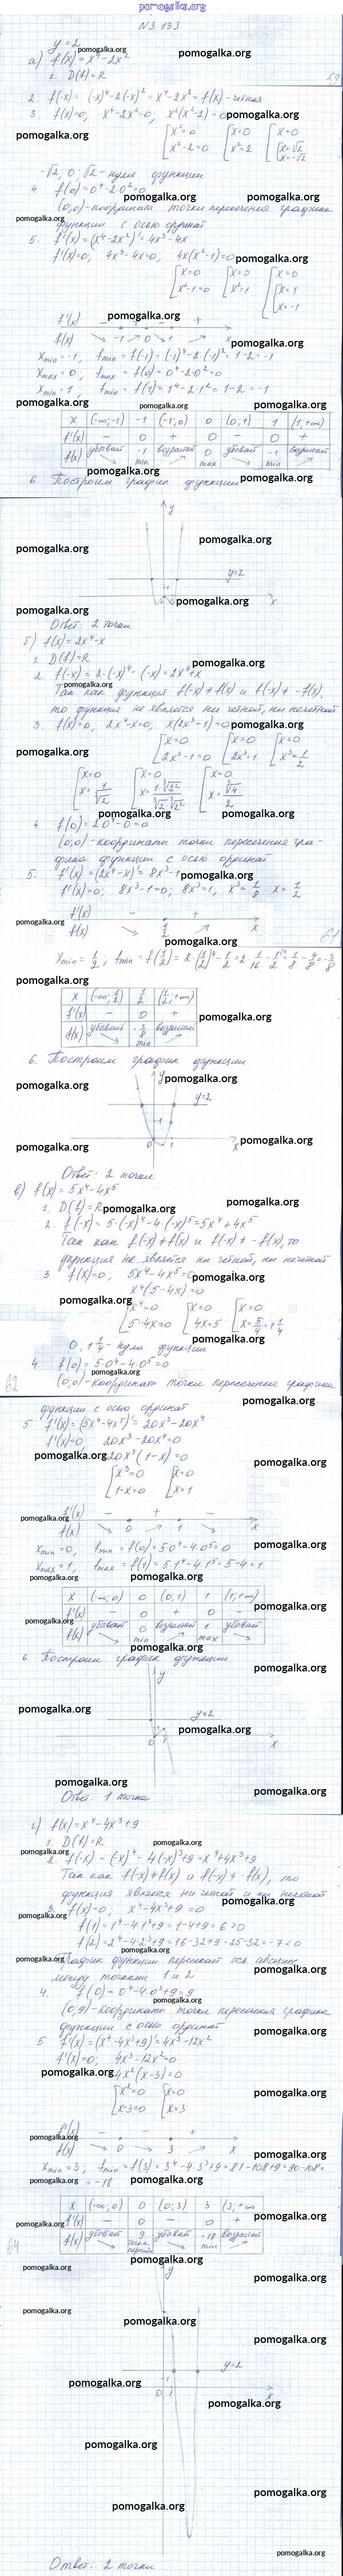 pomogalka.org
№3.133
y=2
а) f(x)=x⁴-2x²
1. D(f)=R
59
2. f(-x)=(-x)⁴-2·(-x)²=x⁴-2x²=f(x)-чётная
3. f(x)=0, x⁴-2x²=0, x²(x²-2)=0
[x²=0 [x=0 [x=0
x²-2=0 x²=2 [x=√2 x=-√2
-√2, 0, √2 - нули функции
4. f(0)=0⁴-2·0²=0
(0;0)-координаты точки пересечения графика
функции с осью ординат
5. f'(x)=(x⁴-2x²)'=4x³-4x
f'(x)=0, 4x³-4x=0, 4x(x²-1)=0
[x=0 [x=0 [x=0
x²-1=0 x²=1 [x=1
x=-1
f'(x) - + - +
f(x) -1 0 1 x
xmin=-1, fmin=f(-1)=(-1)⁴-2·(-1)²=1-2=-1
xmax=0, fmax=f(0)=0⁴-2·0²=0
xmin=1, fmin=f(1)=1⁴-2·1²=1-2=-1
x (-∞;-1) -1 (-1;0) 0 (0;1) 1 (1;+∞)
f'(x) - 0 + 0 - 0 +
f(x) убывает -1 min возрастает 0 max убывает -1 min возрастает
6. Построим график функции
y
y=2
x
Ответ: 2 точки
б) f(x)=2x⁴-x
1. D(f)=R
2. f(-x)=2·(-x)⁴-(-x)=2x⁴+x
Так как функция f(-x)≠f(x) и f(-x)≠-f(x),
то функция не является ни чётной, ни нечётной
3. f(x)=0, 2x⁴-x=0, x(2x³-1)=0
[x=0 [x=0 [x=0
2x³-1=0 2x³=1 x³=1/2
[x=0 [x=0 [x=0
x=1/∛2 x=1·∛2²/∛2·∛2² x=∛4/2
4. f(0)=2·0⁴-0=0
(0;0)-координаты точки пересечения гра-
фика функции с осью ординат
5. f'(x)=(2x⁴-x)'=8x³-1
f'(x)=0; 8x³-1=0; 8x³=1, x³=1/8 x=1/2
f'(x) - +
f(x) 1/2 x
61
xmin=1/2, fmin=f(1/2)=2·(1/2)⁴-1/2=2·1/16-1/2=1/8-4/8=-3/8
x (-∞;1/2) 1/2 (1/2;+∞)
f'(x) - 0 +
f(x) убывает -3/8 min возрастает
6. Построим график функции
y
y=2
x
Ответ: 2 точки
в) f(x)=5x⁴-4x⁵
1. D(f)=R
2. f(-x)=5·(-x)⁴-4·(-x)⁵=5x⁴+4x⁵
Так как f(-x)≠f(x) и f(-x)≠-f(x), то
функция не является ни чётной, ни нечётной
3. f(x)=0, 5x⁴-4x⁵=0
x⁴(5-4x)=0
[x⁴=0 [x=0 [x=0
5-4x=0 4x=5 x=5/4=1 1/4
0, 1 1/4 - нули функции
62
4. f(0)=5·0⁴-4·0⁵=0
(0;0)-координаты точки пересечения графика
функции с осью ординат
5. f'(x)=(5x⁴-4x⁵)'=20x³-20x⁴
f'(x)=0, 20x³-20x⁴=0
20x³(1-x)=0
[x³=0 [x=0
1-x=0 x=1
f'(x) - + -
f(x) 0 1 x
xmin=0, fmin=f(0)=5·0⁴-4·0⁵=0
xmax=1, fmax=f(1)=5·1⁴-4·1⁵=5-4=1
x (-∞;0) 0 (0;1) 1 (1;+∞)
f'(x) - 0 + 0 -
f(x) убывает 0 min возрастает 1 max убывает
6. Построим график функции
y
y=2
0 1 x
Ответ: 1 точка
г) f(x)=x⁴-4x³+9
1. D(f)=R
2. f(-x)=(-x)⁴-4(-x)³+9=x⁴+4x³+9
Так как f(-x)≠f(x) и f(-x)≠-f(x), то
функция является ни чётной и ни нечётной
3. f(x)=0, x⁴-4x³+9=0
f(1)=1⁴-4·1³+9=1-4+9=6>0
f(2)=2⁴-4·2³+9=16-32+9=25-32=-7<0
График функции пересекает ось абсцисс
между точками 1 и 2
4. f(0)=0⁴-4·0³+9=9
(0;9)-координаты точки пересечения графика
функции с осью ординат
5. f'(x)=(x⁴-4x³+9)'=4x³-12x²
f'(x)=0; 4x³-12x²=0
4x²(x-3)=0
[x²=0 [x=0
x-3=0 x=3
f'(x) - - +
f(x) 0 3 x
xmin=3; fmin=f(3)=3⁴-4·3³+9=81-108+9=90-108=
=-18
x (-∞;0) 0 (0;3) 3 (3;+∞
f'(x) - 0 - 0 +
f(x) убывает 9 точка перегиба убывает -18 min возрастает
64
y
y=2
0 1 x
Ответ: 2 точки